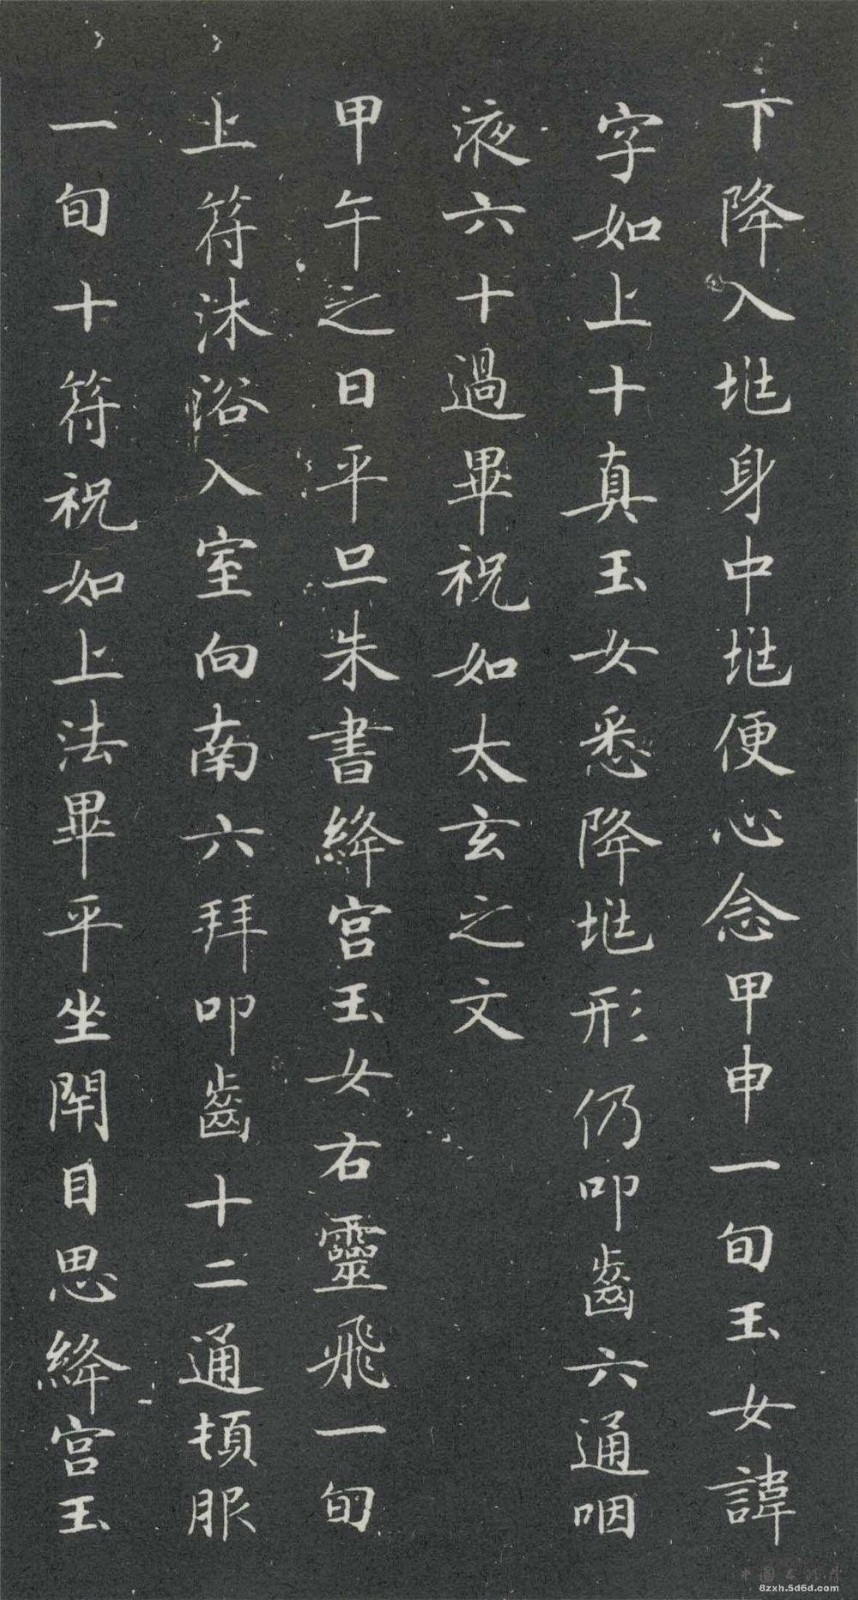 下降入垗身中垗便心念甲申一旬玉女諱
字如上十真玉女悉降垗形仍叩齒六通咽
液六十過畢祝如太玄之文
甲午之日平旦朱書絳宮玉女右靈飛一旬
上符沐浴入室向南六拜叩齒十二通頓服
一旬十符祝如上法畢平坐閉目思絳宮玉
6zxh.5d6d.com